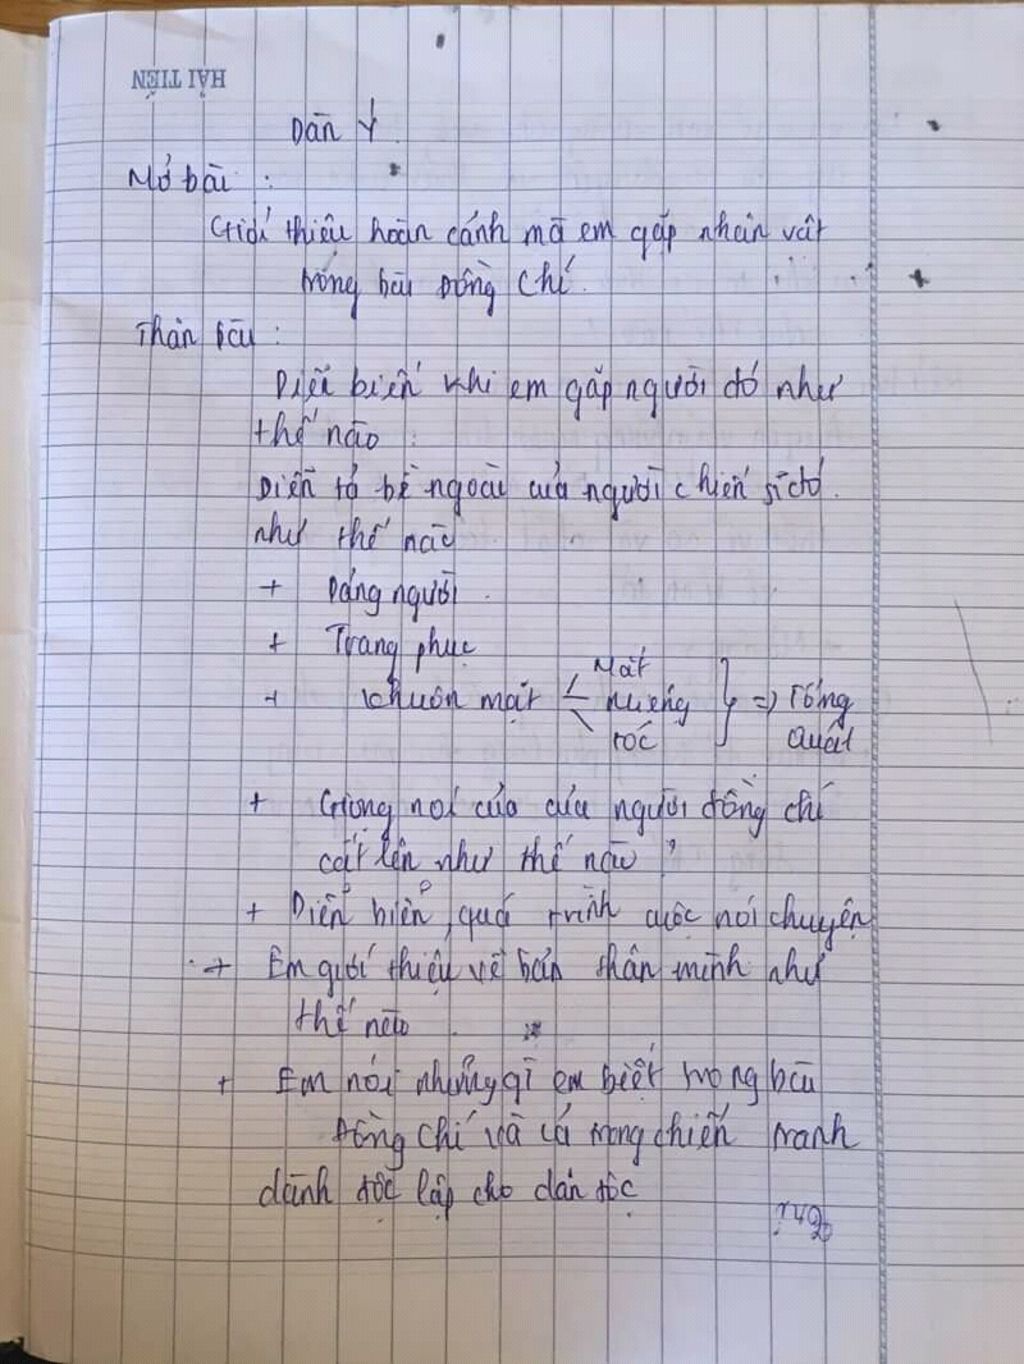 HẢI TIẾN
Dàn Ý
Mở bài :
Giới thiệu hoàn cảnh mà em gặp nhân vật
trong bài Đồng Chí.
Thân bài :
Diễn biến khi em gặp người đó như
thế nào :
Diễn tả bề ngoài của người chiến sĩ đó.
như thế nào
+ Dáng người.
+ Trang phục
+ khuôn mặt Mắt
Miệng } => Tổng
tóc quát
+ Giọng nói của của người đồng chí
cất lên như thế nào ?
+ Diễn biến, quá trình cuộc nói chuyện
+ Em giới thiệu về bản thân mình như
thế nào.
+ Em nói những gì em biết trong bài
Đồng Chí và cả trong chiến tranh
dành độc lập cho dân tộc